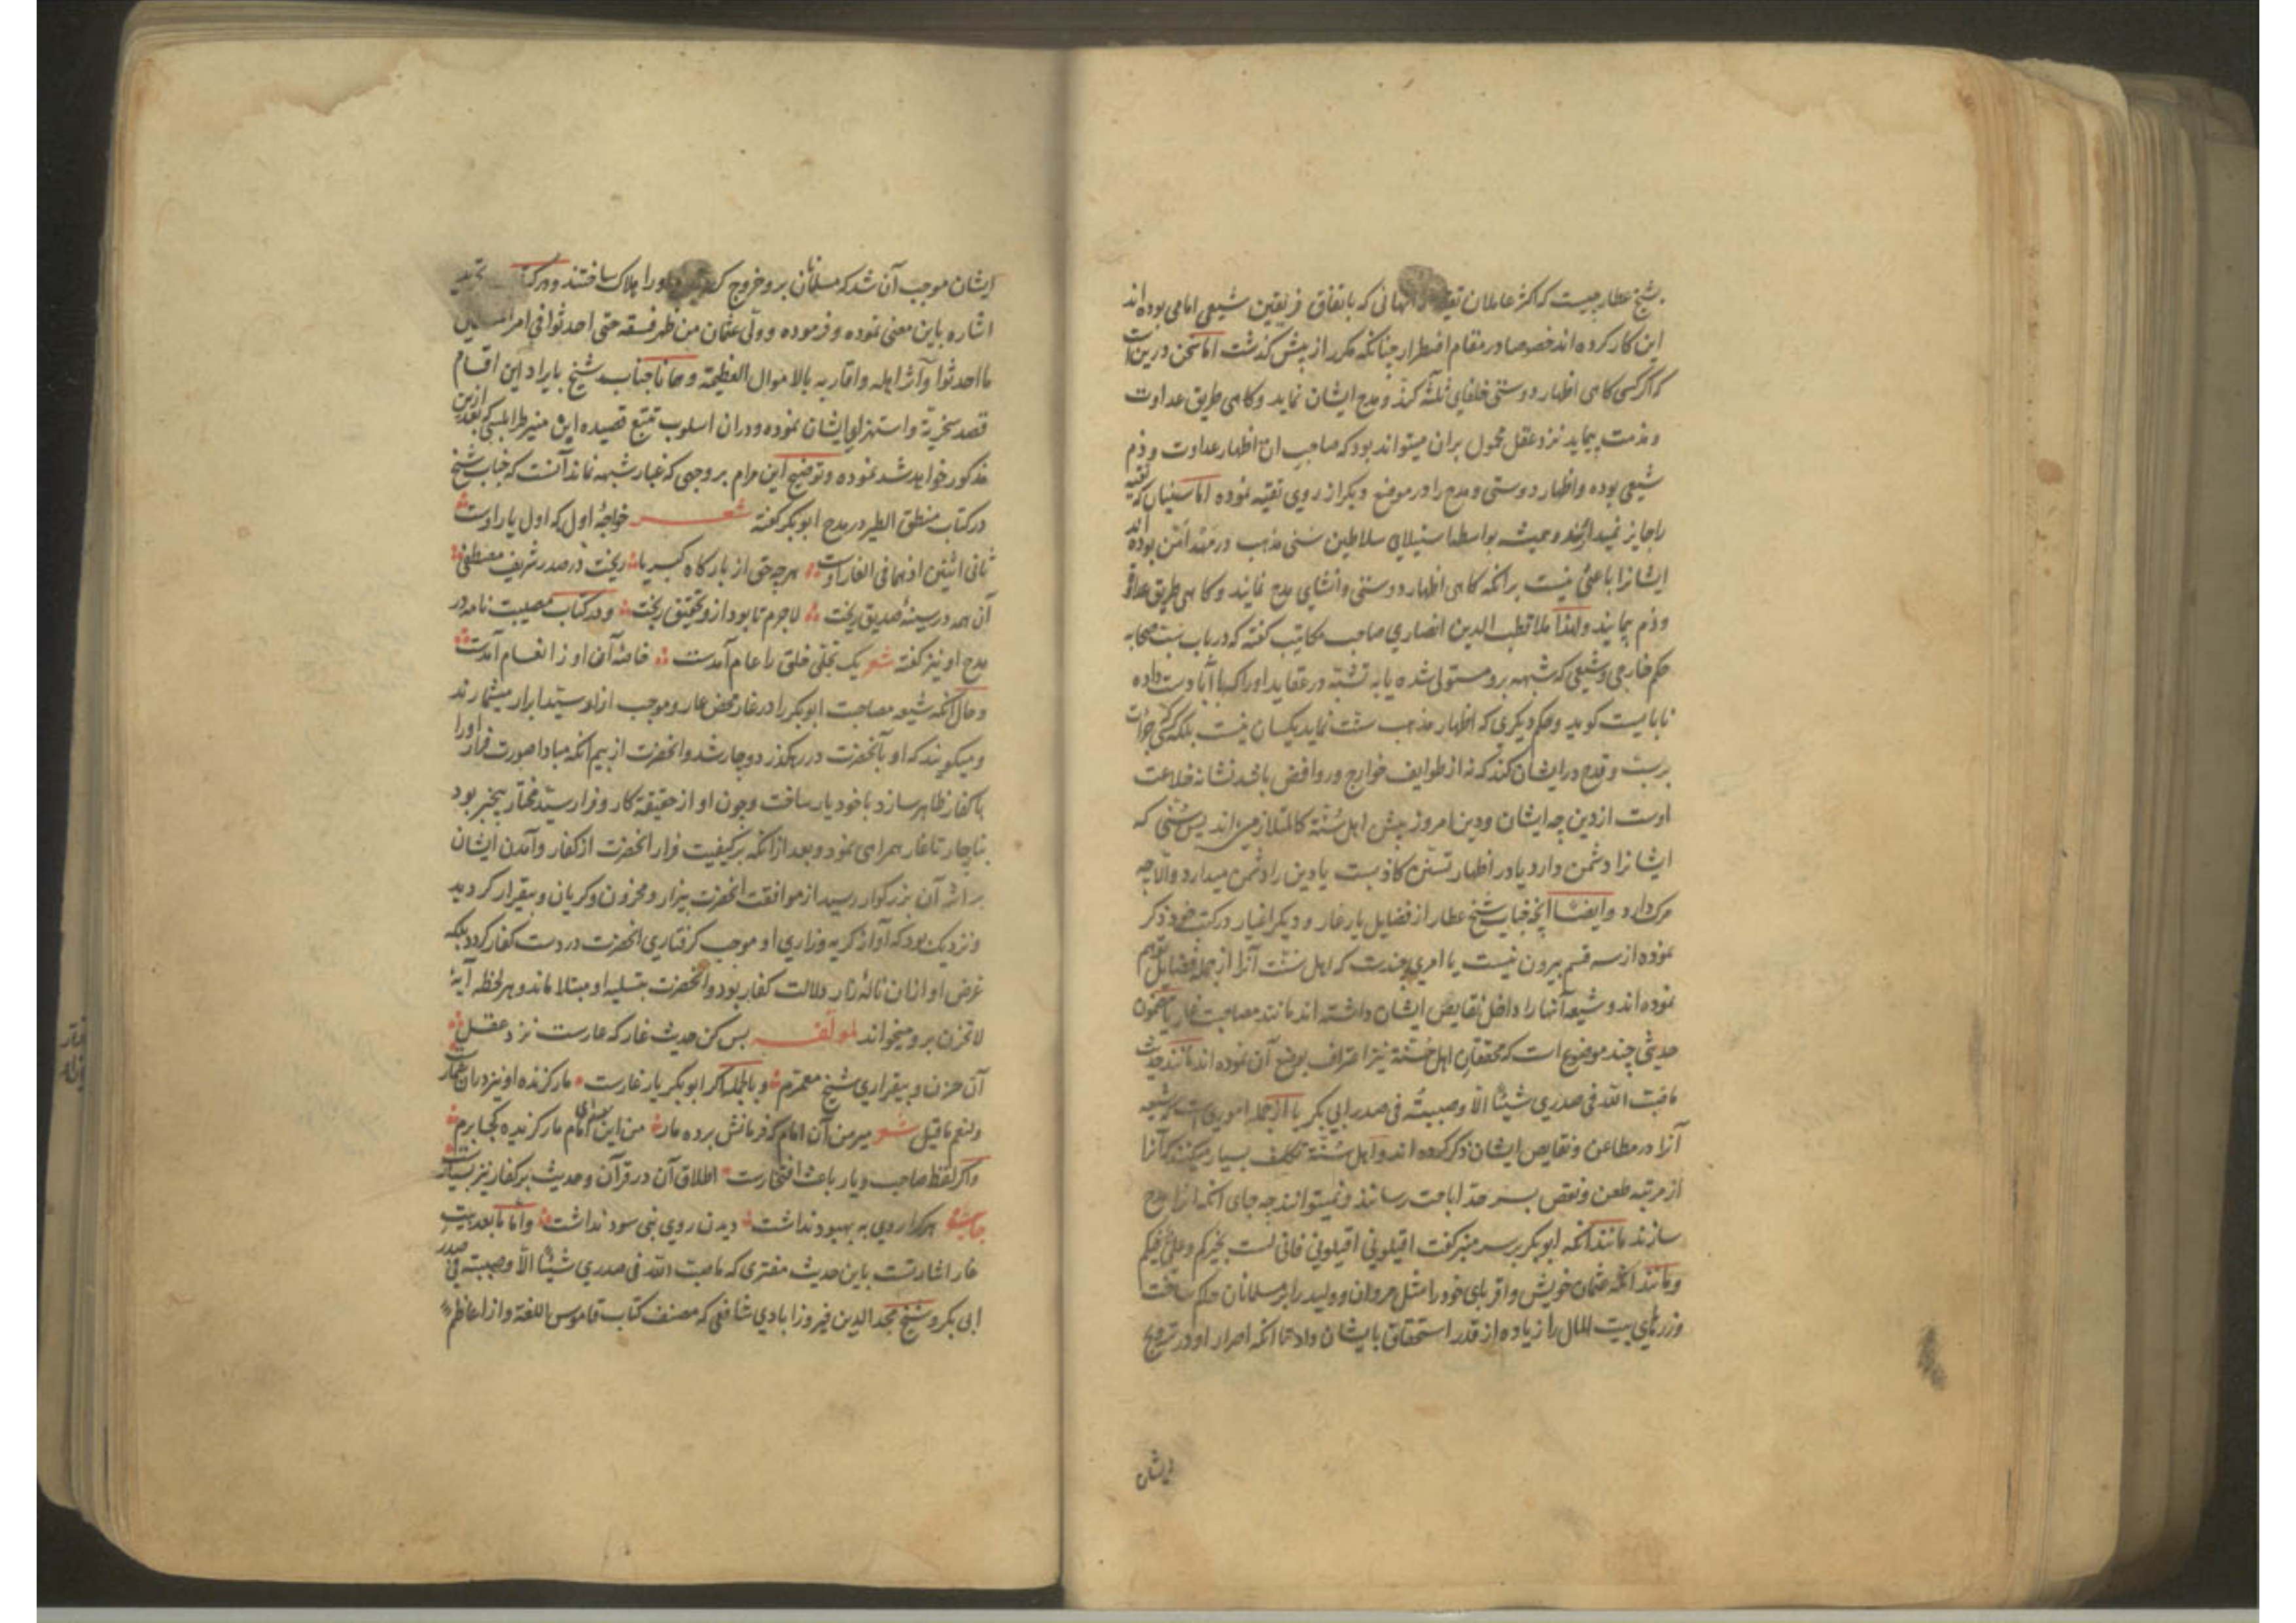 شیخ عطار چیست که اکثر عاملان تقیه و آنهائی که باتفاق فریقین شیعی امامی بوده‌اند
این کار کرده‌اند خصوصا در مقام اضطرار چنانکه مکرر از پیش گذشت اما سخن درین است
که اگر کسی کاهی اظهار دوستی خلفای ثلثه کرد و مدح ایشان نماید و کاهی طریق عداوت
و مذمت پیماید نزد عقل محمول بران میتواند بود که صاحب ان اظهار عداوت و ذم
شیعی بوده و اظهار دوستی و مدح را در موضع دیکر از روی تقیه نموده اما سنیان که تقیه
را جایز نمیدارند و همیشه بواسطه استیلای سلاطین سنی مذهب در مهد امن بوده اند
ایشانرا باعثی نیست برانکه کاهی اظهار دوستی و انشای مدح نمایند و کاهی طریق عداوت
و ذم پیمایند و لهذا ملا قطب الدین انصاری صاحب مکاتیب کفته که در باب سب صحابه
حکم خارجی و شیعی که شبهه برو مستولی شده یا به تشبه در عقاید او را که با آبا دست داده
نابایست کوید و حکم دیکری که اظهار مذهب سنت نماید یکسان نیست بلکه کسی که جرأت
بر سب و قدح در ایشان کند که نه از طوایف خوارج و روافض باشد نشانه خلاعت
اوست از دین چه ایشان و دین امروز پیش اهل سنة کالمتلازمین اند پس سنی که
ایشانرا دشمن دارد یا در اظهار تسنن کاذبست یا دین را دشمن میدارد و الا چه
مرک دارد و ایضا انچه جناب شیخ عطار از فضایل یار غار و دیکر اغیار در کتب خود ذکر
نموده از سه قسم بیرون نیست یا امری چندست که اهل سنت آنرا از جمله فضایل توهم
نموده‌اند و شیعه آنها را داخل نقایص ایشان داشته‌اند مانند مصاحبت غار یا مضمون
حدیثی چند موضوع است که محققان اهل سنة نیز اعتراف بوضع آن نموده‌اند مانند حدیث
ما صب الله فی صدری شیئا الا و صببته فی صدر ابی بکر یا از جمله اموری است که شیعه
آنرا در مطاعن و نقایص ایشان ذکر کرده‌اند و اهل سنة تکلف بسیار میکنند که آنرا
از مرتبه طعن و نقص بسرحد اباحت رسانند و نمیتوانند چه جای انکه انرا مدح
سازند مانند انکه ابو بکر بر سر منبر کفت اقیلونی اقیلونی فانی لست بخیرکم و علی فیکم
و مانند انکه عثمان خویش و اقربای خود را مثل مروان و ولید را بر مسلمانان حاکم ساخت
و زرهای بیت المال را زیاده از قدر استحقاق بایشان داد تا انکه اصرار او در ترویج
ایشان
ایشان موجب آن شد که مسلمانان برو خروج کردند و او را هلاک ساختند و در
اشاره باین معنی نموده و فرموده و ولی عثمان من ظهر فسقه حتی احدثوا فی امر
ما احدثوا و آثر اهله و اقاربه بالاموال العظیمة و همانا جناب شیخ بایراد این اقسام
قصد سخریة و استهزای ایشان نموده و دران اسلوب تتبع قصیده ابن منیر طرابلسی که بعد ازین
مذکور خواهد شد نموده و توضیح این مرام بر وجهی که غبار شبهه نماند آنست که جناب شیخ
در کتاب منطق الطیر در مدح ابو بکر کفته شعر خواجهٔ اول که اول یار اوست
ثانی اثنین اذ هما فی الغار اوست هرچه حق از بارکاه کبریا ریخت در صدر شریف مصطفی
آن همه در سینهٔ صدیق ریخت لاجرم تا بود ازو تحقیق ریخت و در کتاب مصیبت نامه در
مدح او نیز کفته شعر یک تجلی خلق را عام آمدست خاصهٔ آن او ز انعام آمدست
و حال آنکه شیعه مصاحبت ابو بکر را در غار محض عار و موجب آزار سید ابرار میشمارند
و میکویند که او بآنحضرت در رهکذر دوچار شد و انحضرت از بیم انکه مبادا صورت فرار او را
با کفار ظاهر سازد با خود یار ساخت و چون او از حقیقة کار و فرار سید مختار بیخبر بود
بناچار تا غار همراهی نمود و بعد ازانکه بر کیفیت فرار انحضرت از کفار و آمدن ایشان
بر اثر آن بزرکوار رسید از موافقت انحضرت بیزار و محزون و کریان و بیقرار کردید
و نزدیک بود که آواز کریه و زاری او موجب کرفتاری انحضرت در دست کفار کردد بلکه
غرض او ازان نالهٔ زار دلالت کفار بود و انحضرت بتسلیه او مبتلا ماند و هر لحظه آیهٔ
لا تحزن برو میخواند لمولفه بس کن حدیث غار که عارست نزد عقل
آن حزن و بیقراری شیخ معمرم و بالجمله اکر ابو بکر یار غارست مار کزنده او نیز دران غمارست
و لنعم ما قیل شعر میر من آن امام که فرمانش برده مار من این امام مار کزنده کجا برم
و اکر لفظ صاحب و یار باعث افتخارست اطلاق آن در قرآن و حدیث بر کفار نیز بسیارست
هر که را روی به بهبود نداشت دیدن روی نبی سود نداشت و اما ما بعد بیت
غار اشارتست باین حدیث مفتری که ما صب الله فی صدری شیئا الا و صببته فی صدر
ابی بکر و شیخ مجد الدین فیروزابادی شافعی که مصنف کتاب قاموس اللغة و از اعاظم